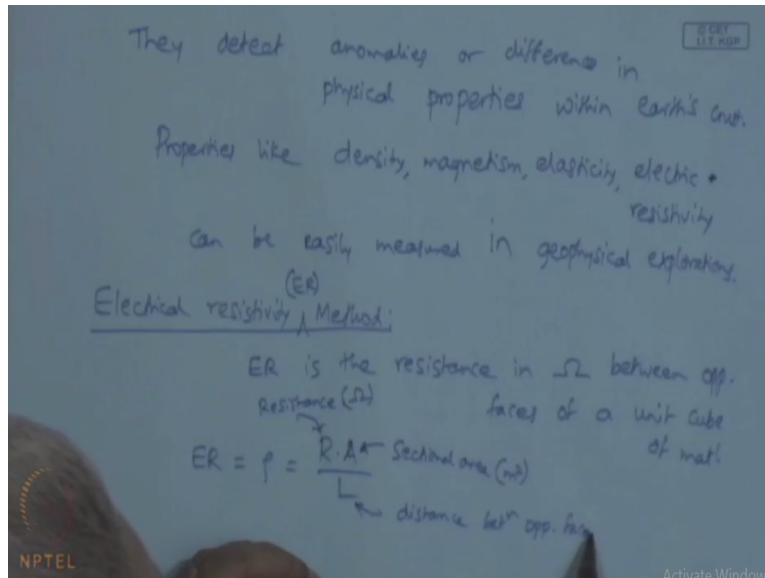 © CET
I.I.T. KGP
They detect anomalies or difference in
physical properties within earth's crust.
Properties like density, magnetism, elasticity, electric
resistivity
can be easily measured in geophysical explorations.
(ER)
Electrical resistivity ∧ Method:
ER is the resistance in Ω between opp.
faces of a unit cube
of matl.
Resistance (Ω)
ER = ρ = R·A / L
Sectional area (m²)
distance betn opp. faces
NPTEL
Activate Window